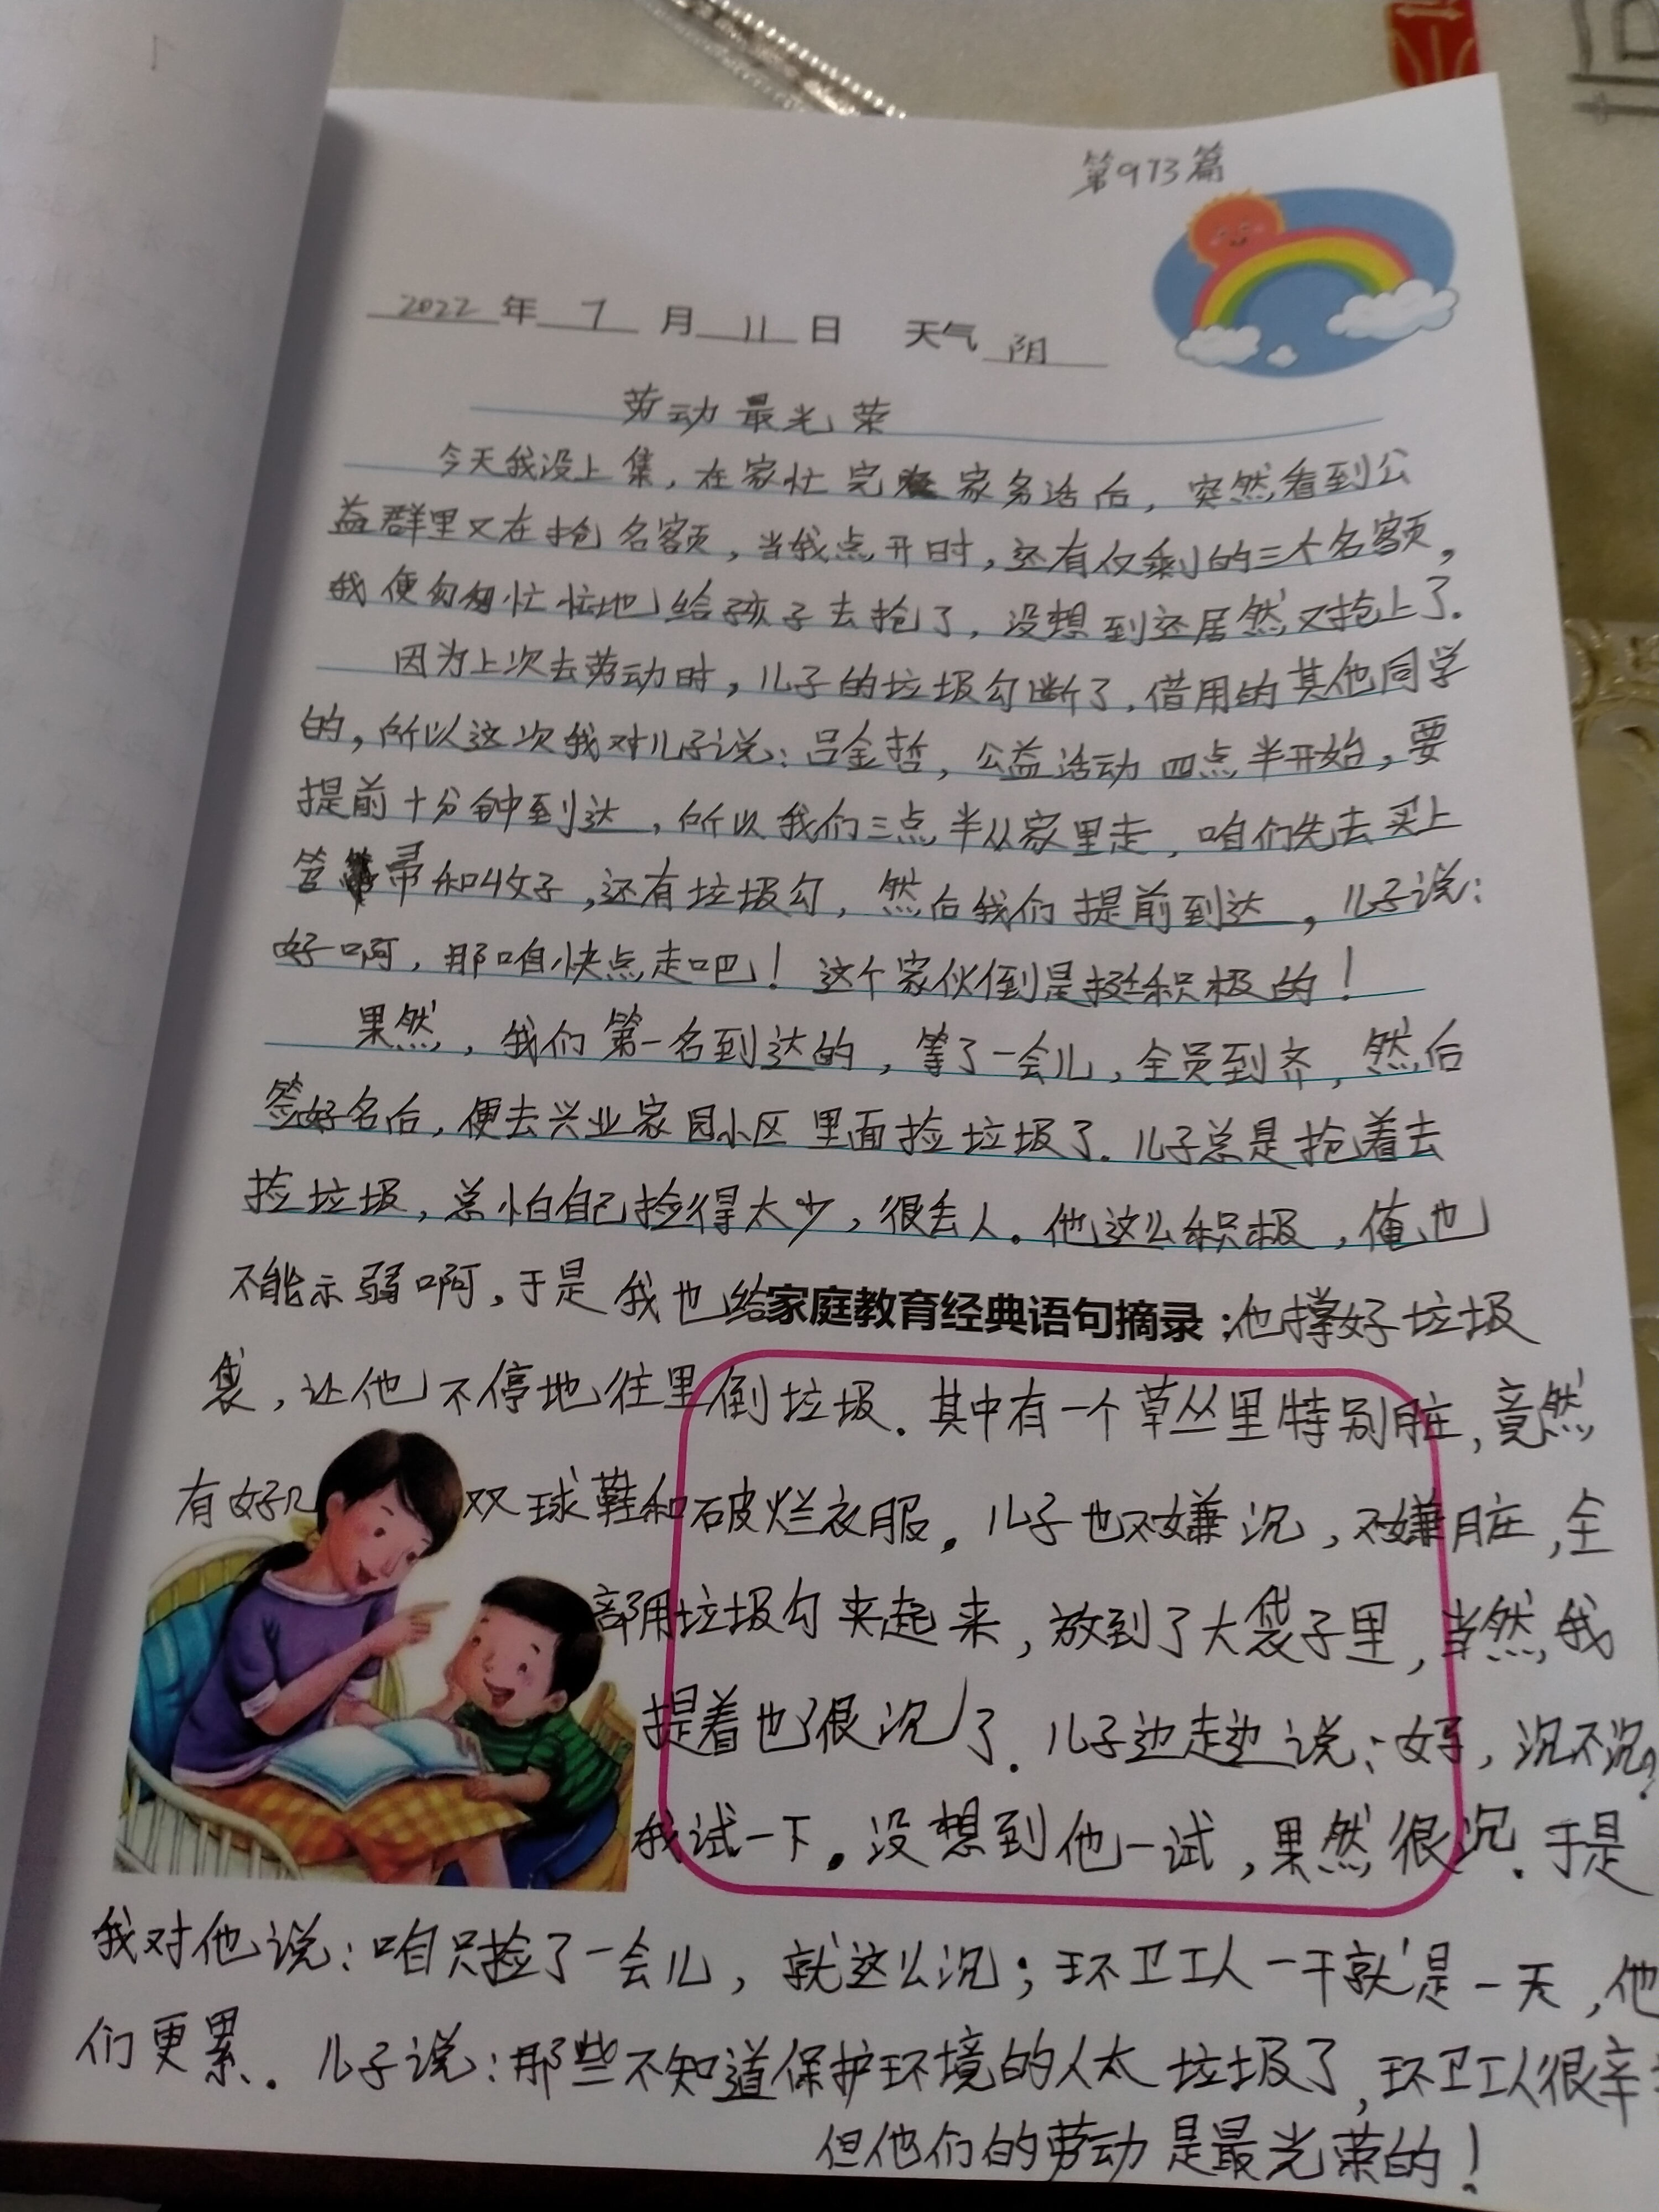 第973篇
2022年7月11日 天气 阴
劳动最光荣
今天我没上集，在家忙完家务活后，突然看到公
益群里又在抢名额，当我点开时，还有仅剩的三大名额，
我便匆匆忙忙地给孩子去抢了，没想到还居然又抢上了.
因为上次去劳动时，儿子的垃圾勾断了，借用的其他同学
的，所以这次我对儿子说：吕金哲，公益活动四点半开始，要
提前十分钟到达，所以我们三点半从家里走，咱们先去买上
笤帚和收子，还有垃圾勾，然后我们提前到达，儿子说：
好啊，那咱快点走吧！这个家伙倒是挺积极的！
果然，我们第一名到达的，等了一会儿，全员到齐，然后
签好名后，便去兴业家园小区里面捡垃圾了.儿子总是抢着去
捡垃圾，总怕自己捡得太少，很丢人。他这么积极，俺也
不能示弱啊，于是我也给家庭教育经典语句摘录：他撑好垃圾
袋，让他不停地往里倒垃圾.其中有一个草丛里特别脏，竟然
有好几双球鞋和破烂衣服。儿子也不嫌沉，不嫌脏，全
部用垃圾勾夹起来，放到了大袋子里，当然，我
提着也很沉了.儿子边走边说：好，沉不沉？
我试一下。没想到他一试，果然很沉.于是
我对他说：咱只捡了一会儿，就这么沉；环卫工人一干就是一天，他
们更累.儿子说：那些不知道保护环境的人太垃圾了，环卫工人很辛
但他们的劳动是最光荣的！